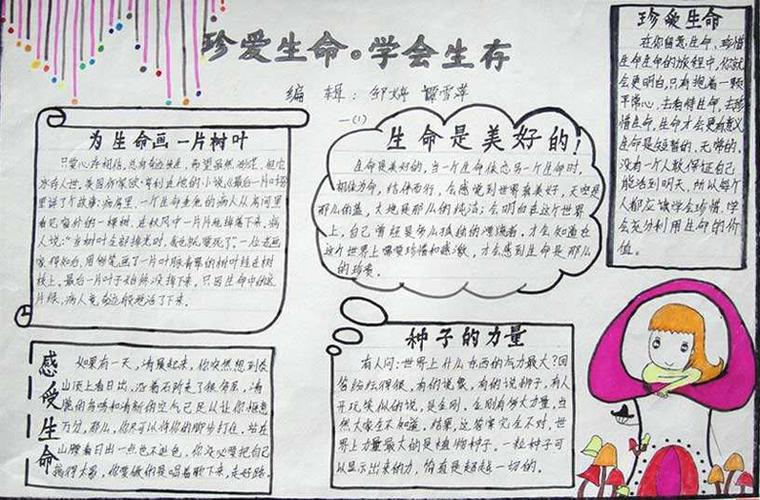 珍爱生命。学会生存
编 辑：邹婷 谭雪萍
一(1)
为生命画一片树叶
只要心存相信，总有奇迹发生，希望虽然渺茫，但它
永存人世。美国作家欧·亨利在他的小说《最后一片叶》里
讲了个故事：病房里，一个生命垂危的病人从房间里
看见窗外的一棵树，在秋风中一片片地掉落下来。病
人说："当树叶全部掉光时，我也就要死了。"一位老画
家得知后，用彩笔画了一片叶脉青翠的树叶挂在树
枝上。最后一片叶子始终没掉下来，只因生命中的这
片绿，病人竟奇迹般地活了下来。
生命是美好的！
生命是美好的，当一个生命依恋另一个生命时，
相依为命，结伴而行，会感觉到世界真美好，天空是
那么的蓝，大地是那么的纯洁；会明白在这个世界
上，自己曾经是多么孤独的漂流者，才会知道在
这个世界上哪要珍惜和感激，才会感到生命是那么
的珍贵。
珍爱生命
在你留意生命，珍惜
生命生命的旅程中，你就
会更明白，只有抱着一颗
平常心，去看待生命，去珍
惜生命，生命才会更有意义
生命是短暂的，无常的，
没有一个人敢保证自己
能活到明天，所以每个
人都应该学会珍惜，学
会充分利用生命的价
值。
感受生命
如果有一天，清晨起来，你突然想到泰
山顶上看日出，沿着石阶走了很多层，清
脆的鸟鸣和清新的空气已足以让你惬意
万分，那么，你尽可以将你的脚步打住，站在
山腰看日出一点也不逊色，你没必要把自己
搞得太累，你要做的是唱着歌下来，走好路。
种子的力量
有人问：世界上什么东西的气力最大？回
答纷纭得很，有的说象，有的说狮子，有人
开玩笑似的说，是金刚，金刚有多大力量，当
然大家全不知道。结果，这答案完全不对，世
界上力量最大的是植物种子。一粒种子可
以显示出来的力，简直是超越一切的。